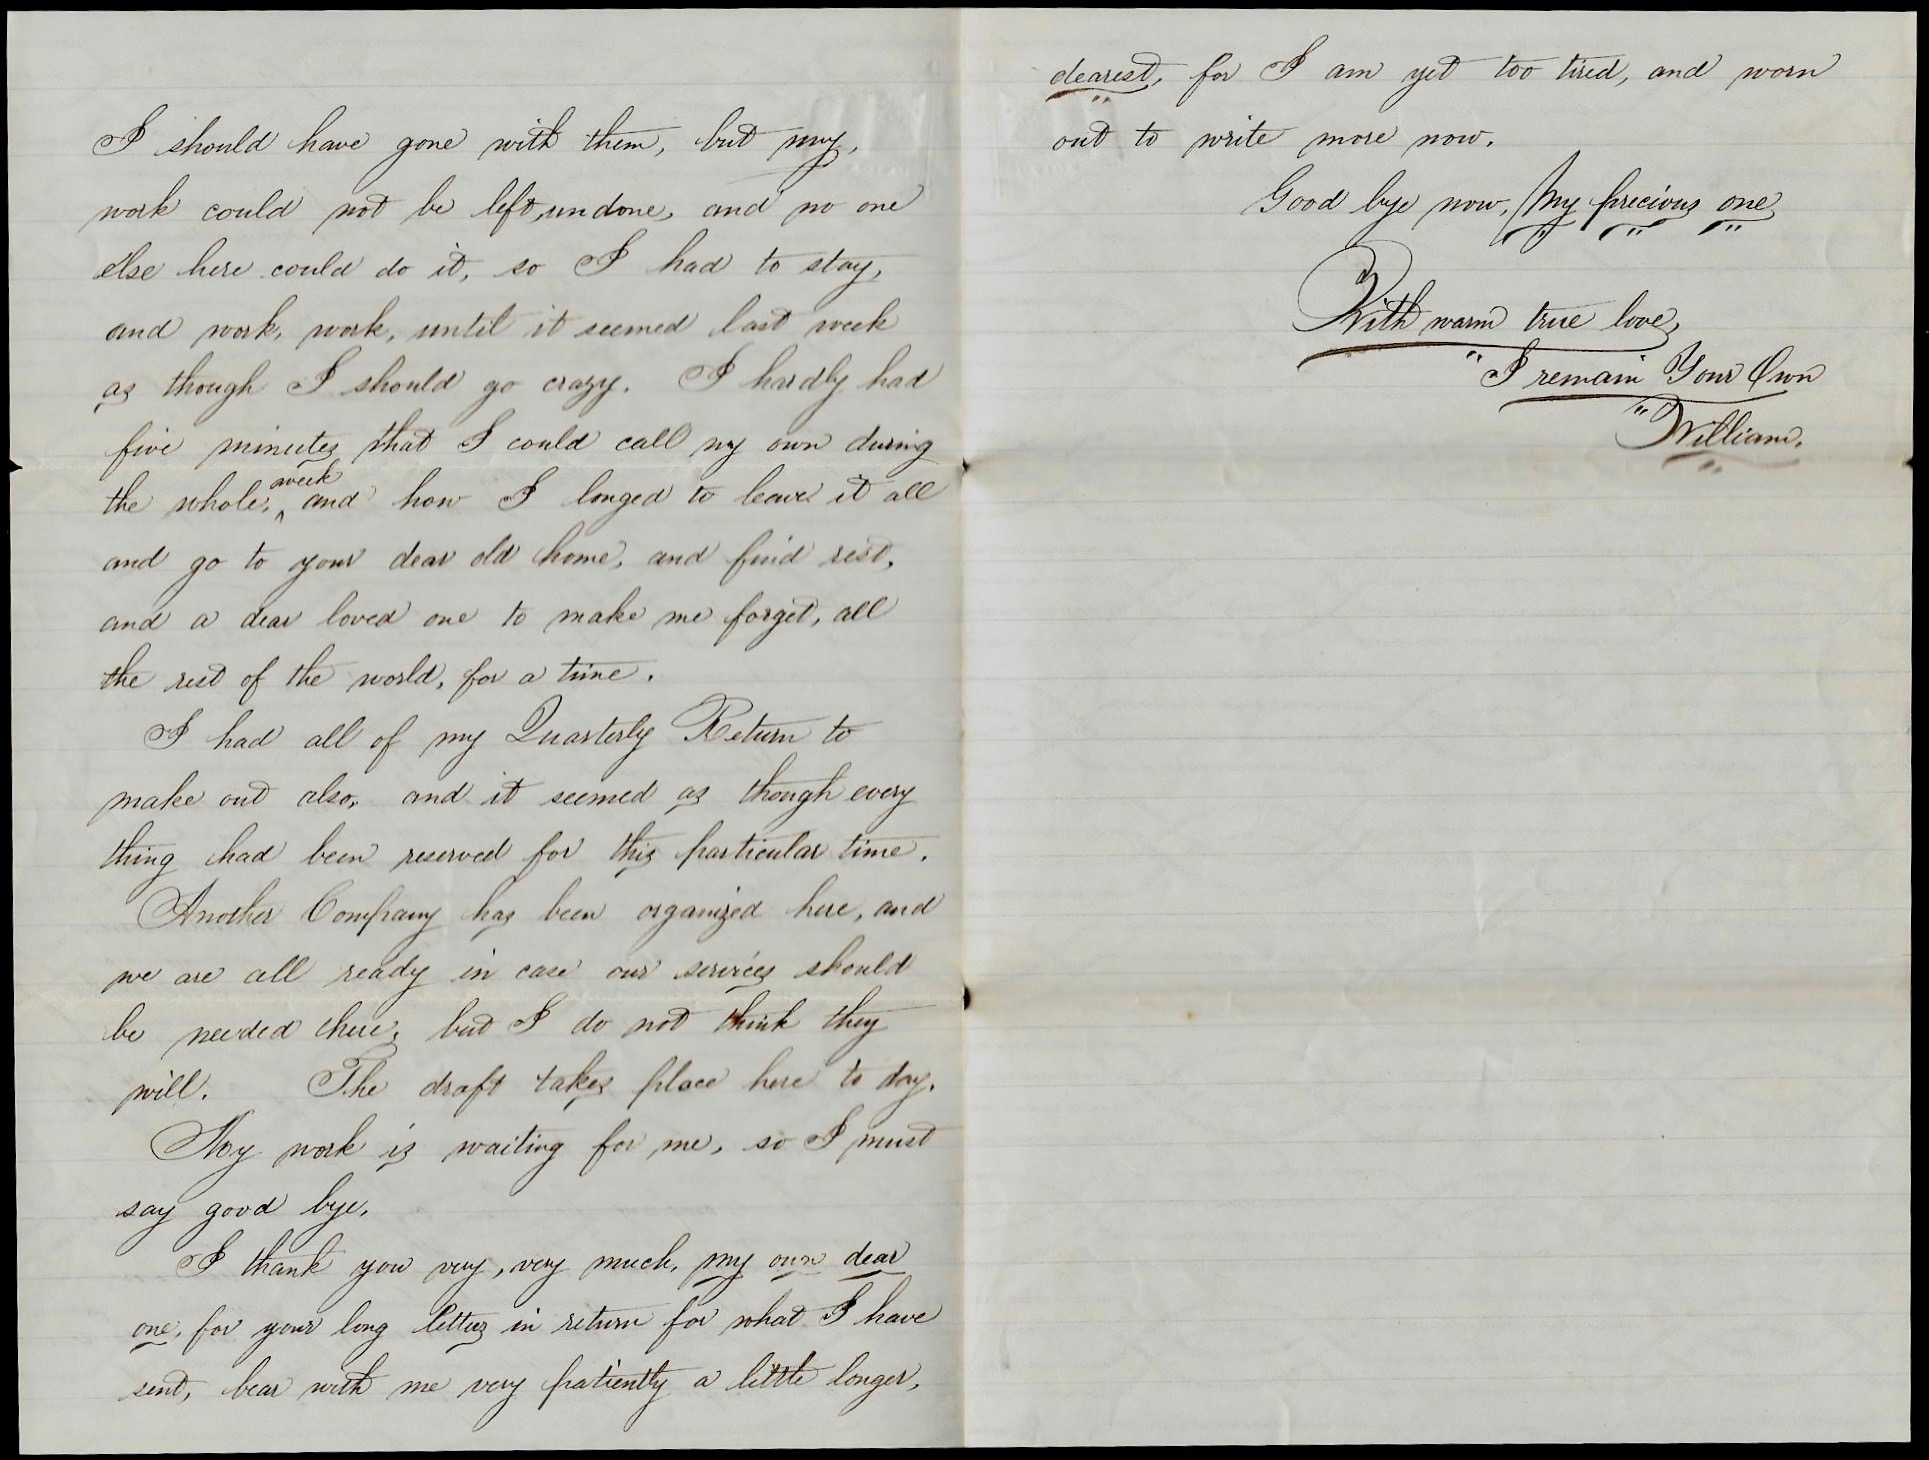 I should have gone with them, but my,
work could not be left undone, and no one
else here could do it, so I had to stay,
and work, work, until it seemed last week
as though I should go crazy. I hardly had
five minutes that I could call my own during
week
the whole, ^ and how I longed to leave it all
and go to your dear old home, and find rest,
and a dear loved one to make me forget, all
the rest of the world, for a time.
I had all of my Quarterly Return to
make out also, and it seemed as though every
thing had been reserved for this particular time.
Another Company has been organized here, and
we are all ready in case our services should
be needed here, but I do not think they
will. The draft takes place here to day.
My work is waiting for me, so I must
say good bye.
I thank you very, very much, my own dear
one, for your long letters in return for what I have
sent, bear with me very patiently a little longer,
dearest, for I am yet too tired, and worn
out to write more now.
Good bye now, My precious one
With warm true love,
I remain Your Own
William.